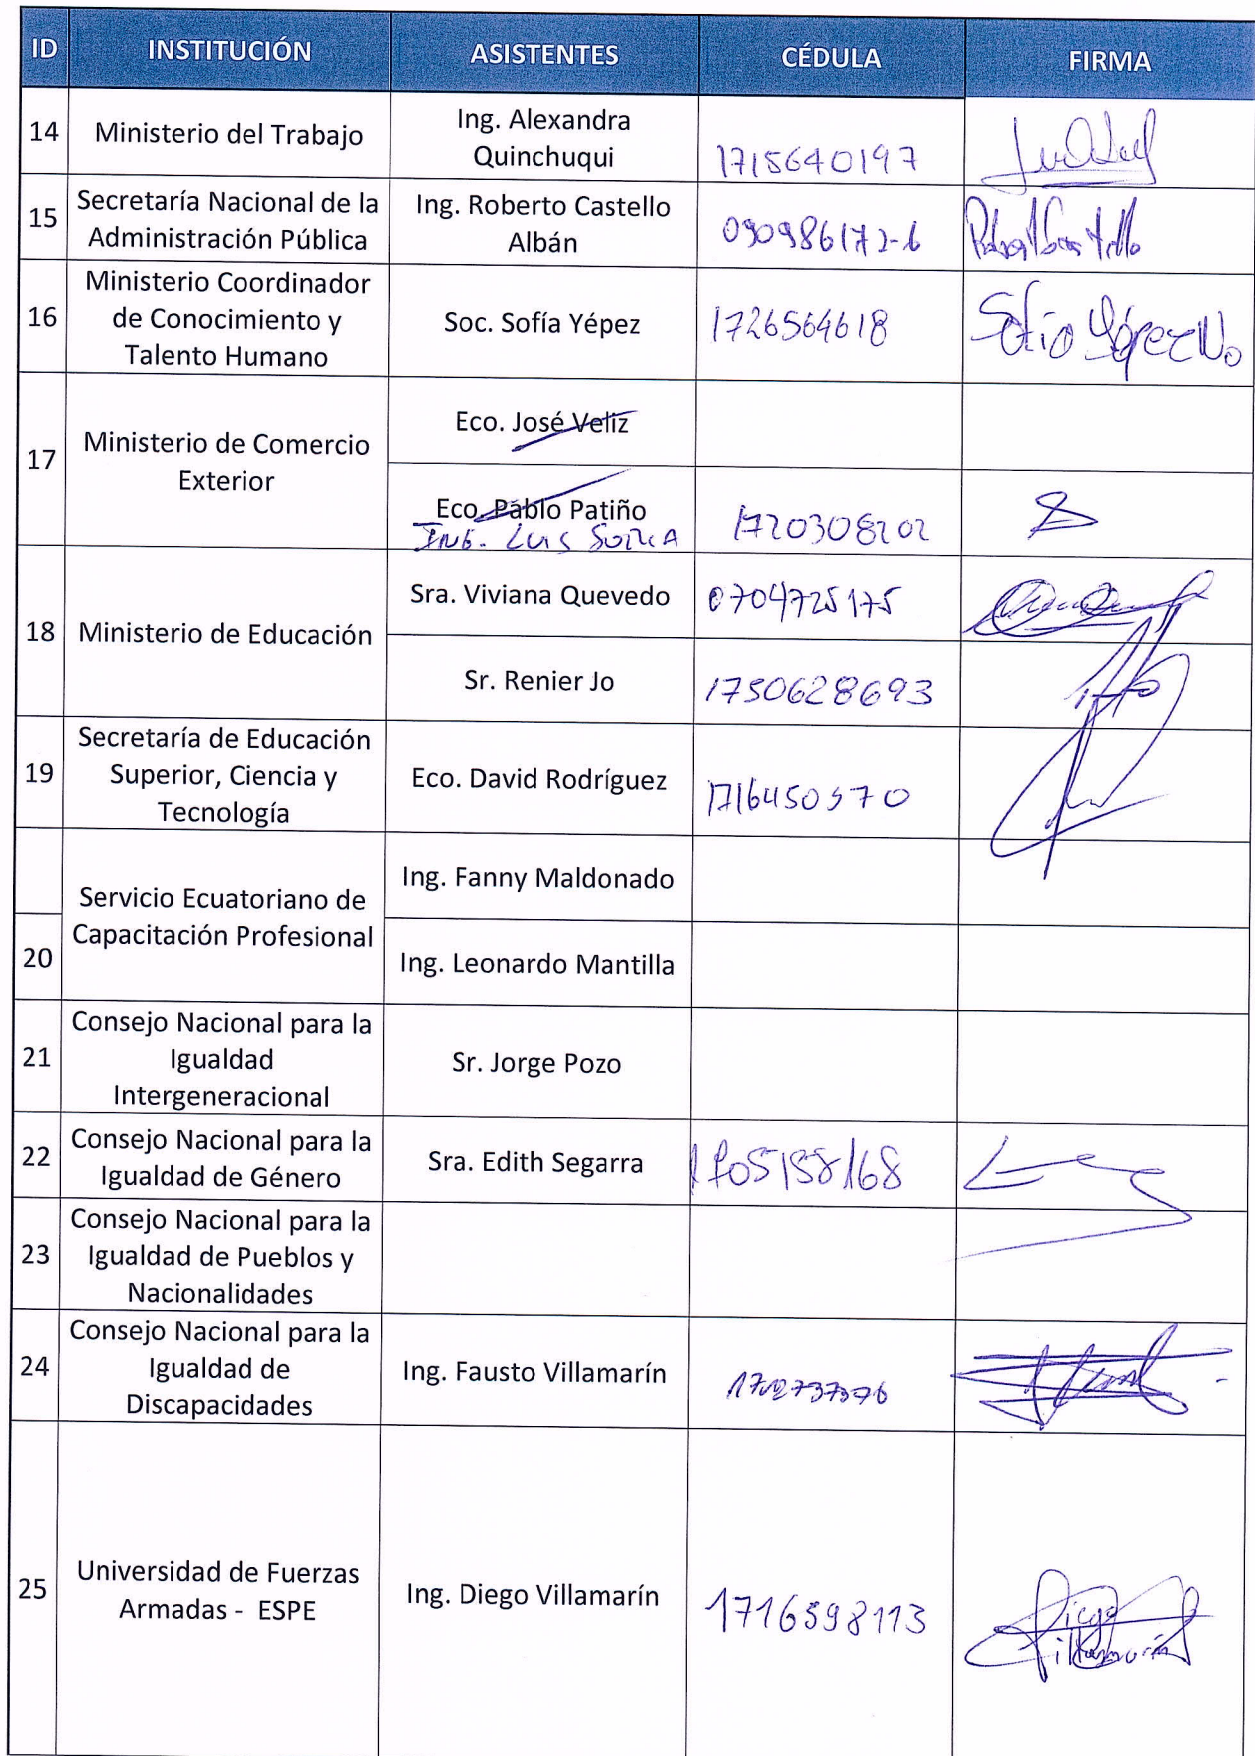 ID INSTITUCIÓN ASISTENTES CÉDULA FIRMA
14 Ministerio del Trabajo
Ing. Alexandra
Quinchuqui
1715640197
15
Secretaría Nacional de la
Administración Pública
Ing. Roberto Castello
Albán
090986172-6
16
Ministerio Coordinador
de Conocimiento y
Talento Humano
Soc. Sofía Yépez
1726564618
Sofía Yépez
17
Ministerio de Comercio
Exterior
Eco. José Veliz
Eco. Pablo Patiño
ING. LUIS
1720308202
18
Ministerio de Educación
Sra. Viviana Quevedo
0704725175
Sr. Renier Jo
1750628693
19
Secretaría de Educación
Superior, Ciencia y
Tecnología
Eco. David Rodríguez
1716450570
20
Servicio Ecuatoriano de
Capacitación Profesional
Ing. Fanny Maldonado
Ing. Leonardo Mantilla
21
Consejo Nacional para la
Igualdad
Intergeneracional
Sr. Jorge Pozo
22
Consejo Nacional para la
Igualdad de Género
Sra. Edith Segarra
23
Consejo Nacional para la
Igualdad de Pueblos y
Nacionalidades
24
Consejo Nacional para la
Igualdad de
Discapacidades
Ing. Fausto Villamarín
25
Universidad de Fuerzas
Armadas - ESPE
Ing. Diego Villamarín
1716598113
Diego
Villamarín